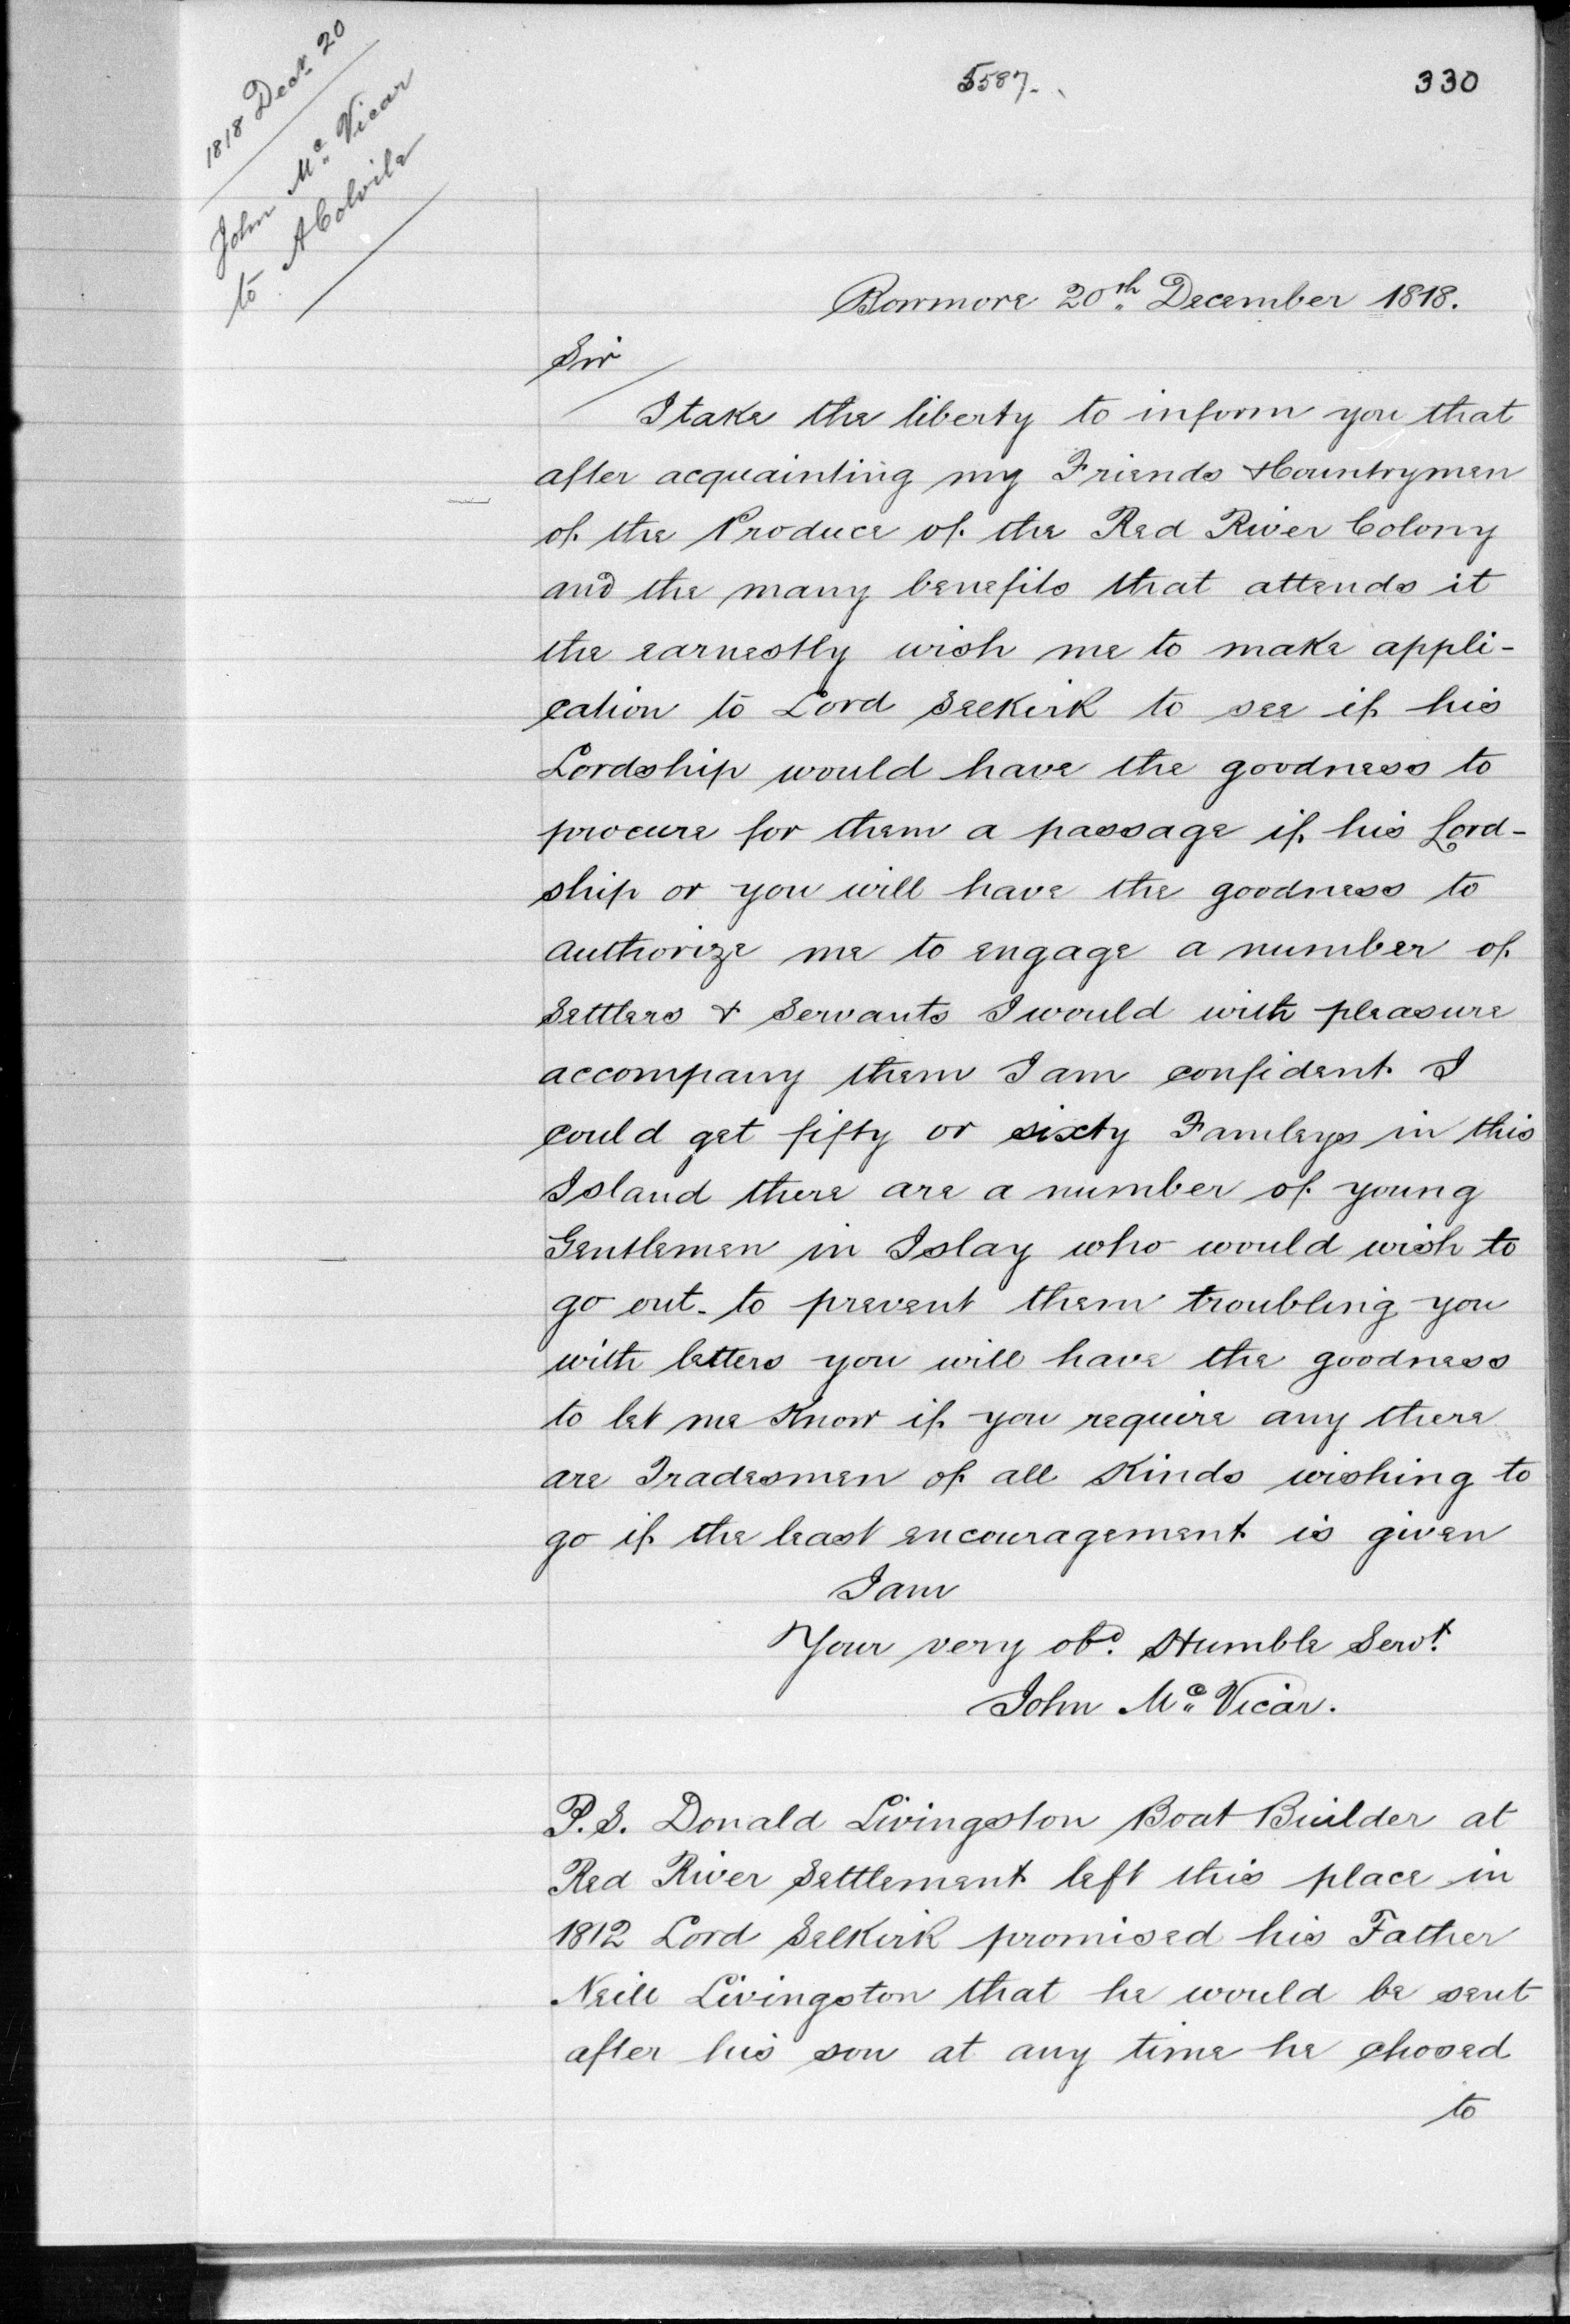 1818 Decr. 20
John Mc. Vicar
to A Colvile
5587.
330
Bowmore 20th December 1818.
Sir
I take the liberty to inform you that
after acquainting my Friends & Countrymen
of the Produce of the Red River Colony
and the many benefits that attends it
the earnestly wish me to make appli-
cation to Lord Selkirk to see if his
Lordship would have the goodness to
procure for them a passage if his Lord-
ship or you will have the goodness to
authorize me to engage a number of
Settlers & Servants I would with pleasure
accompany them I am confident I
could get fifty or sixty Famleys in this
Island there are a number of young
Gentlemen in Islay who would wish to
go out- to prevent them troubling you
with letters you will have the goodness
to let me Know if you require any there
are Tradesmen of all Kinds wishing to
go if the least encouragement is given
I am
Your very obd. Humble Servt.
John Mc. Vicar.
P.S. Donald Livingston Boat Builder at
Red River Settlement left this place in
1812 Lord Selkirk promised his Father
Neill Livingston that he would be sent
after his son at any time he chosed
to